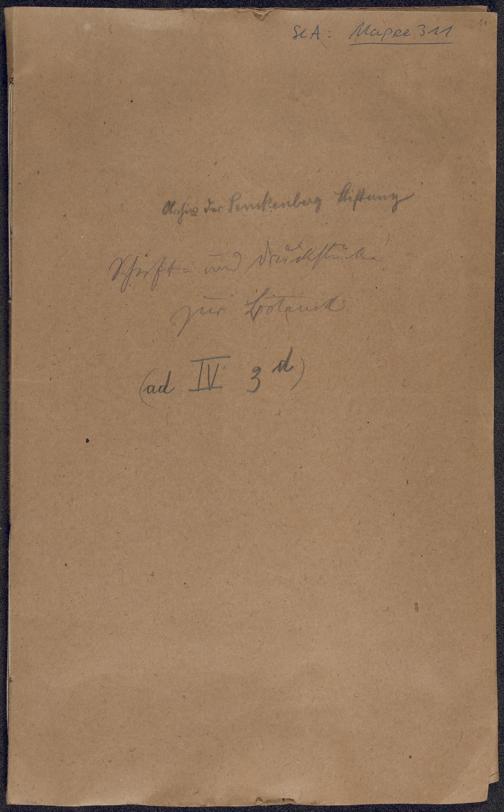 SCA: Mappe 311
Archiv der Senckenberg Stiftung
Schrift- und Druckstücke
zur Botanik
(ad IV 3 d)